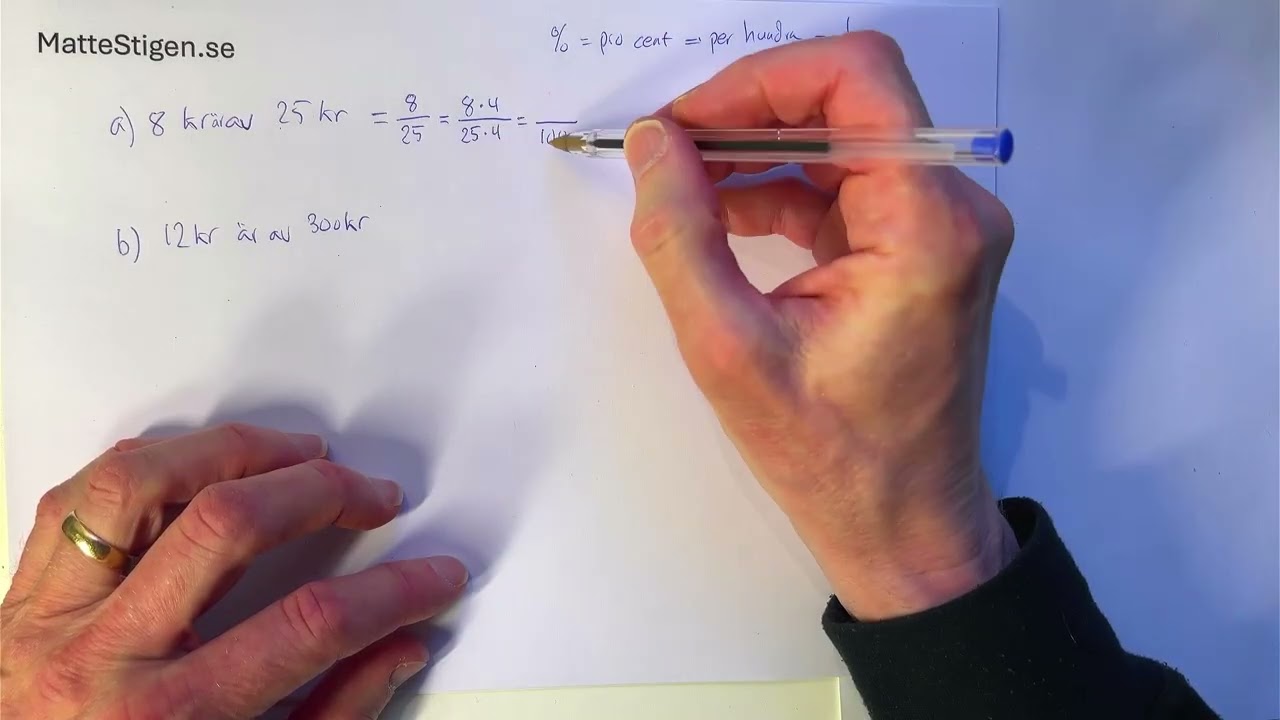 MatteStigen.se
% = pro cent = per hundra =
a) 8 kr är av 25 kr = 8/25 = 8·4/25·4 =
b) 12 kr är av 300 kr